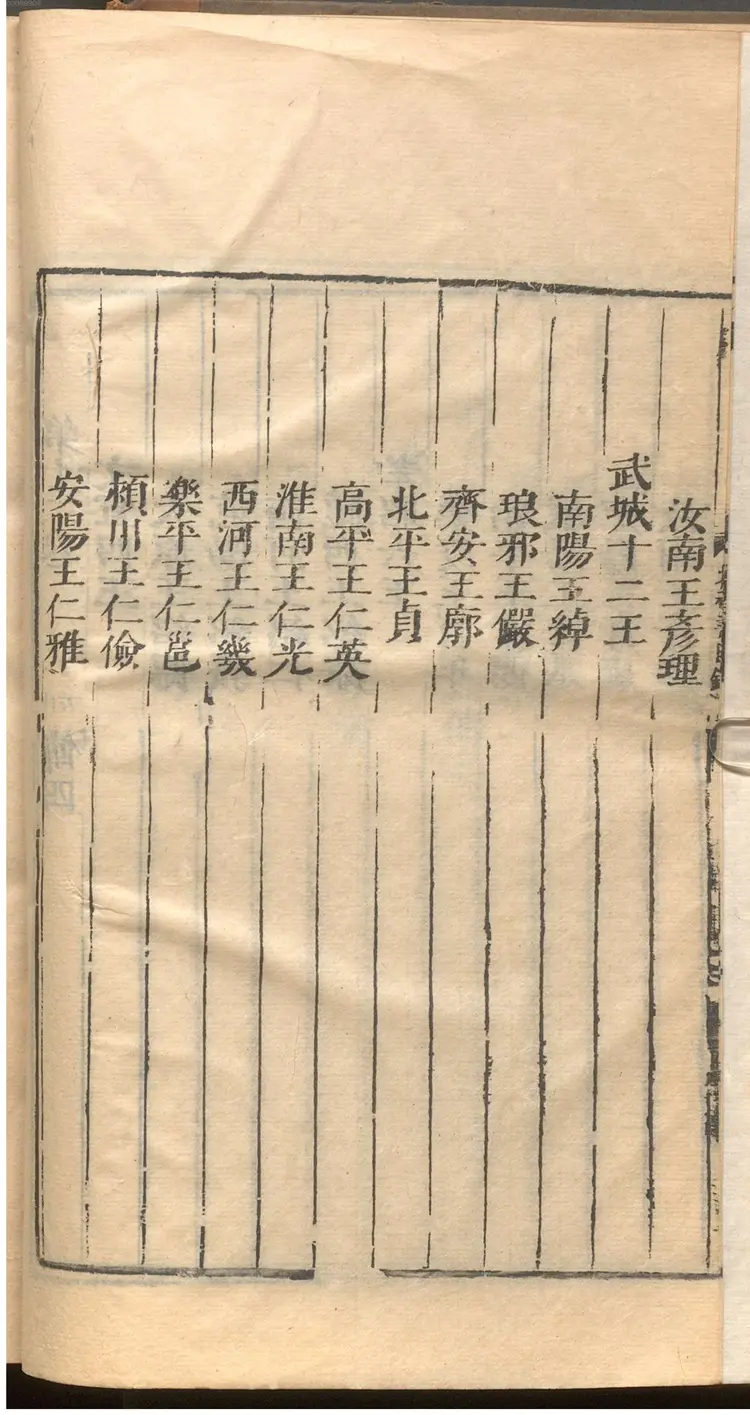 汝南王彥理
武城十二王
南陽王綽
琅邪王儼
齊安王廓
北平王貞
高平王仁英
淮南王仁光
西河王仁幾
樂平王仁邕
頴川王仁儉
安陽王仁雅